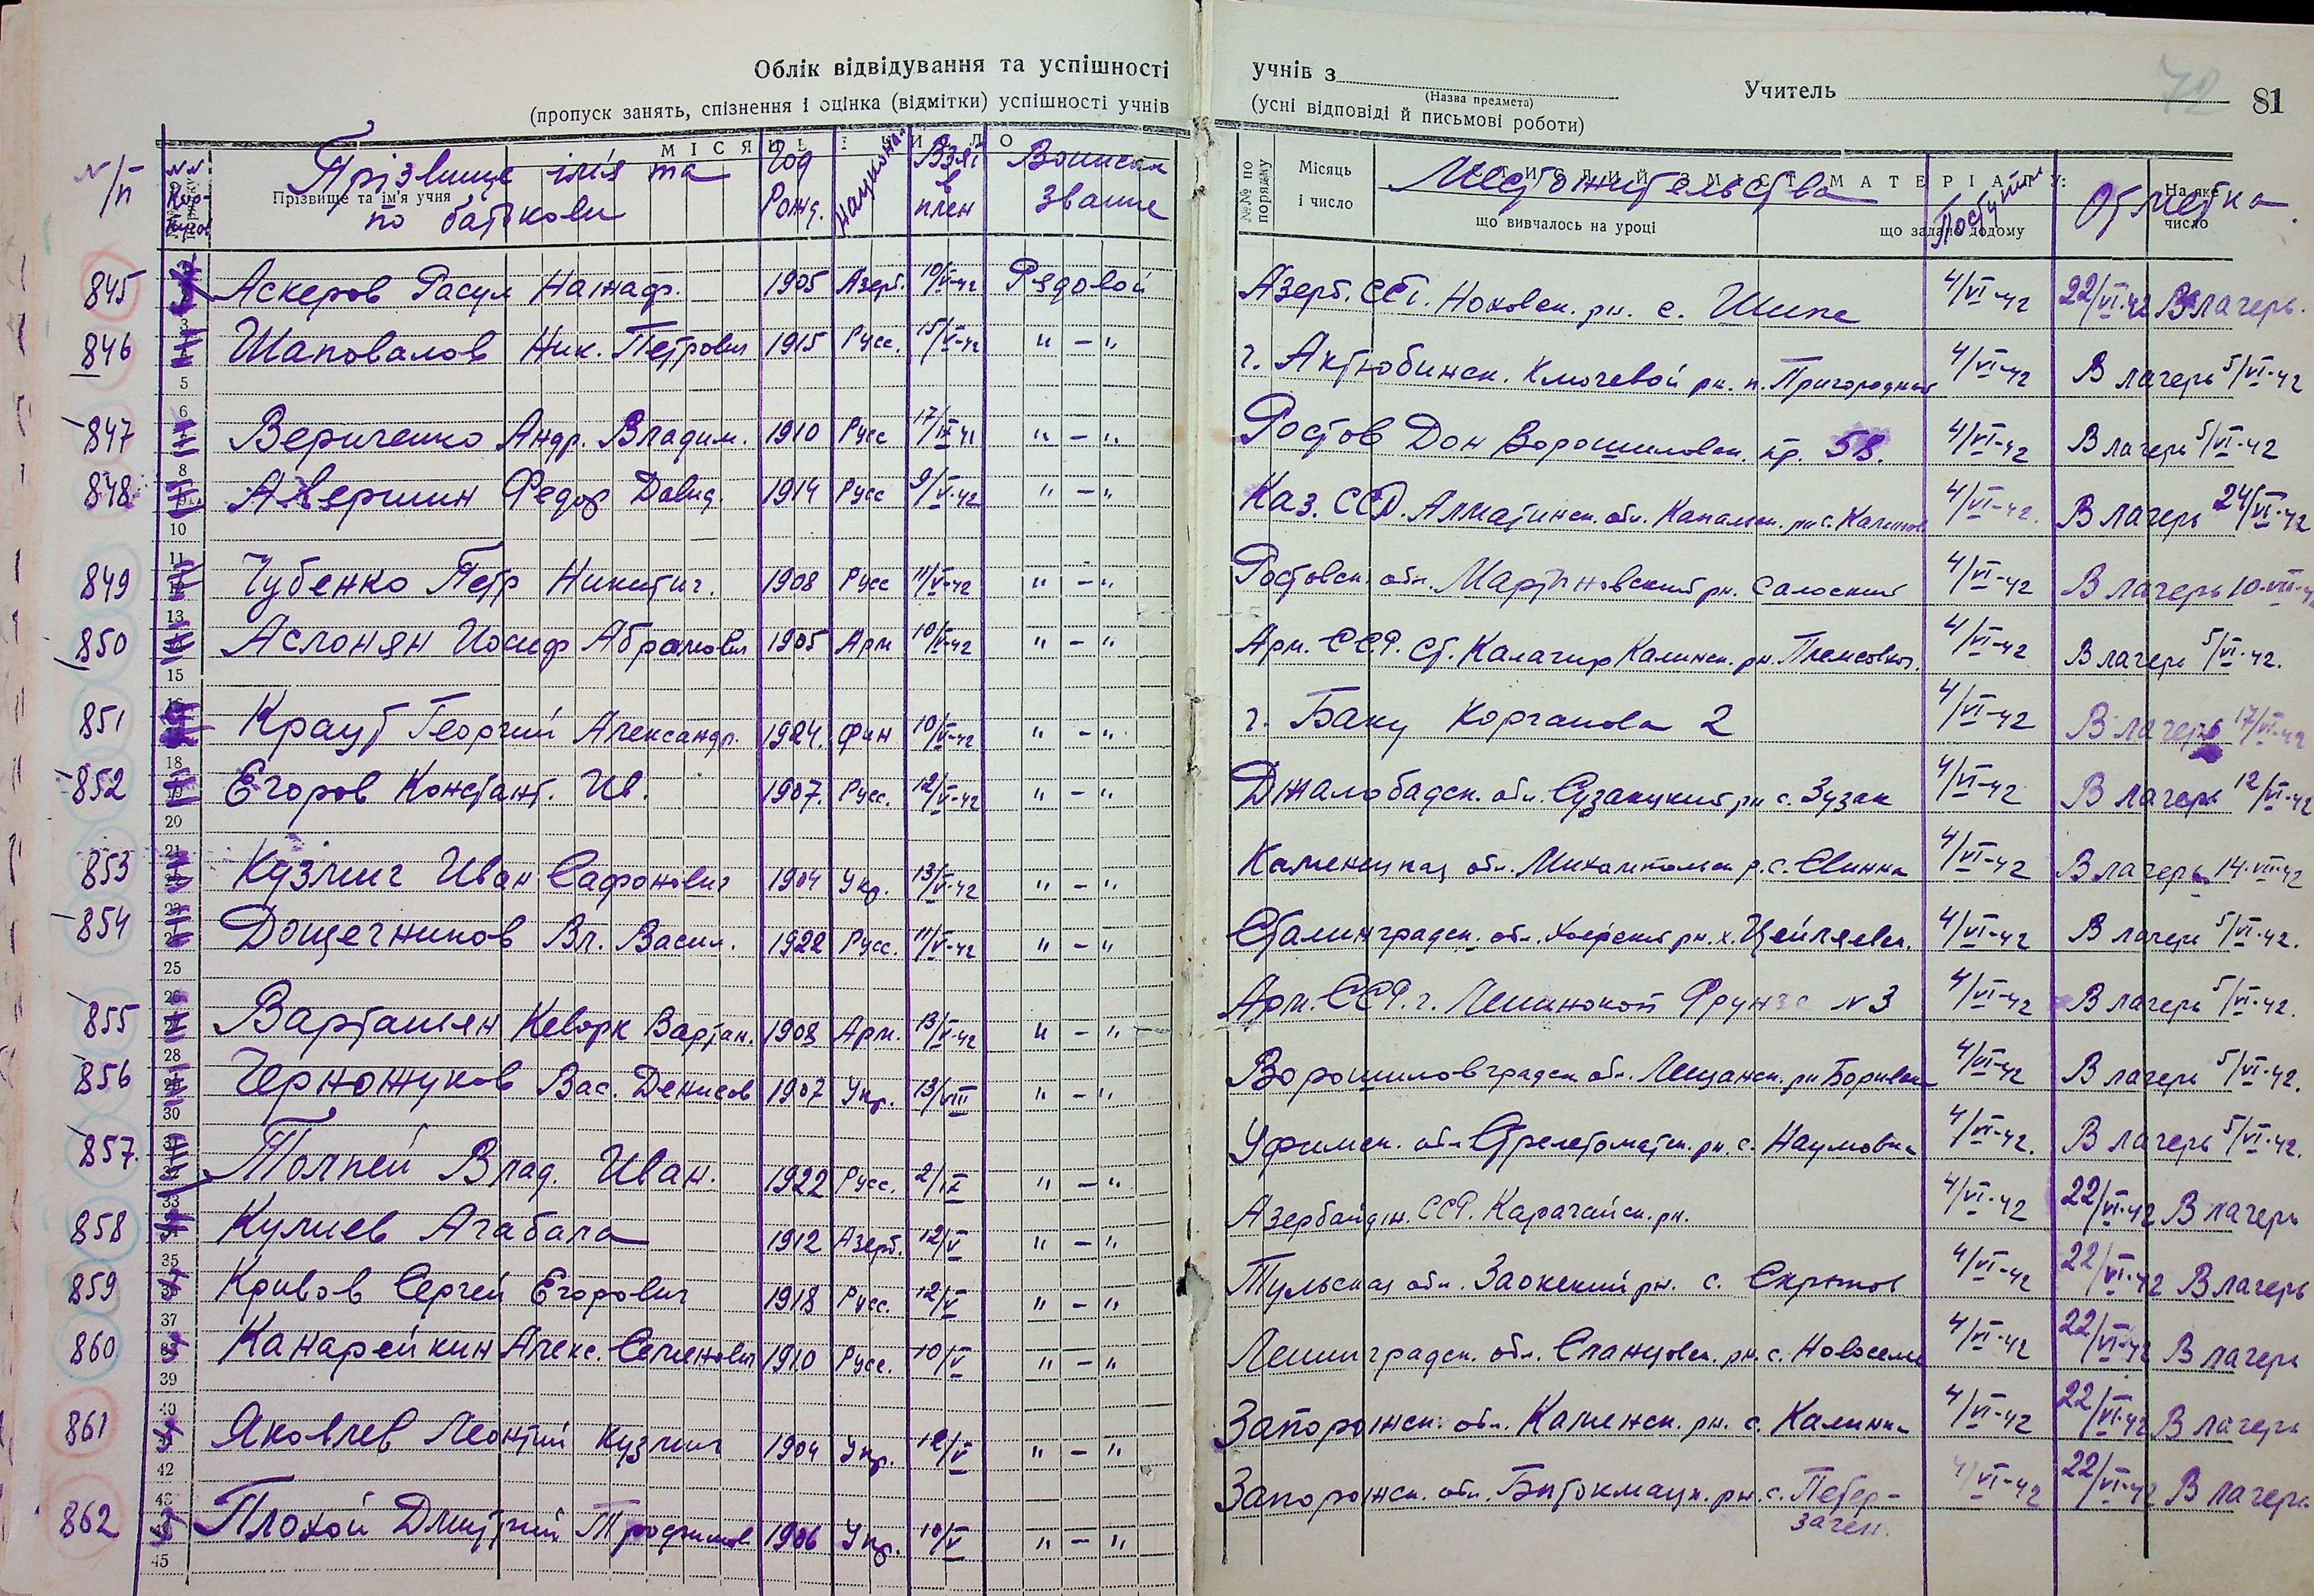 Облік відвідування та успішності учнів з Учитель 72 81
(Назва предмета)
(пропуск занять, спізнення і оцінка (відмітки) успішності учнів (усні відповіді й письмові роботи)
N/п Прізвище ім'я та по батькови Год Рожд. Взят в плен Воинское звание Местожительства Поступил Отметка
Прізвище та ім'я учня №№ по порядку Місяць і число що вивчалось на уроці що задано додому На яке число
845 Аскеров Расул Нажаф. 1905 Азерб. 10/V-42 Рядовой Азерб. ССР. Ноховск. рн. с. Шипе 4/VI-42 22/VI-42 В лагерь.
846 Шаповалов Ник. Петрович 1915 Русс. 15/V-42 " - " г. Актюбинск. Ключевой рн. п. Пригородный 4/VI-42 В лагерь 5/VI-42
847 Вериченко Андр. Владим. 1910 Русс 17/IX-41 " - " Ростов Дон Ворошиловск. пр. 58. 4/VI-42 В лагерь 5/VI-42
848 Авершин Федор Давид. 1914 Русс 9/V-42 " - " Каз. ССР. Алматинск. обл. Капальск. рн с. Калинов. 4/VI-42. В лагерь 24/VI-42
849 Чубенко Петр Никитич. 1908 Русс 11/V-42 " - " Ростовск. обл. Мартыновский рн. Салоский 4/VI-42 В лагерь 10-VIII-42
850 Аслонян Иосиф Абрамович 1905 Арм 10/V-42 " - " Арм. ССР. Ст. Калагир Калинск. рн. 4/VI-42 В лагерь 5/VI-42.
851 Краут Георгий Александр. 1924. Фин 10/V-42 " - " г. Баку Корганова 2 4/VI-42 В лагерь 17/VI-42
852 Егоров Констант. Ив. 1907. Русс. 12/V-42 " - " Джалобадск. обл. Сузакукий рн с. Зузак 4/VI-42 В лагерь 12/VI-42
853 Кузмич Иван Сафонович 1904 Укр. 13/V-42 " - " Каменецкая обл. р. с. Слинка 4/VI-42 В лагерь 14-VIII-42
854 Дощечников Вл. Васил. 1922 Русс. 11/V-42 " - " Сталинградск. обл. Хоперский рн. х. Цейляевск. 4/VI-42 В лагерь 5/VI-42.
855 Вартанян Кеворк Вартан. 1908 Арм. 13/V-42 " - " Арм. ССР. г. Ленинокоп Фрунзе N 3 4/VI-42 В лагерь 5/VI-42.
856 Черножуков Вас. Денисов 1907 Укр. 13/VIII " - " Ворошиловградск. обл. Лещанск. рн Боривск 4/VI-42 В лагерь 5/VI-42.
857. Толпей Влад. Иван. 1922 Русс. 2/IX " - " Уфимск. обл. Стрелетоматск. рн. с. Наумовка 4/VI-42. В лагерь 5/VI-42.
858 Кулиев Агабала 1912 Азерб. 12/V " - " Азербайджн. ССР. Карагайск. рн. 4/VI-42 22/VI-42 В лагерь
859 Кривов Сергей Егорович 1918 Русс. 12/V " - " Тульская обл. Заокский рн. с. Скрипов 4/VI-42 22/VI-42 В лагерь
860 Канарейкин Алекс. Семенович 1910 Русс. 10/V " - " Ленинградск. обл. Сланцовск. рн. с. Новоселье 4/VI-42 22/VI-42 В лагерь
861 Яковлев Леонтий Кузмич 1904 Укр. 12/V " - " Запорожск. обл. Каменск. рн. с. Калинка 4/VI-42 22/VI-42 В лагерь
862 Плохой Дмитрий Трофимов 1906 Укр. 10/V " - " Запорожск. обл. Битокмацк. рн. с. Петер- 4/VI-42 22/VI-42 В лагерь
загек.